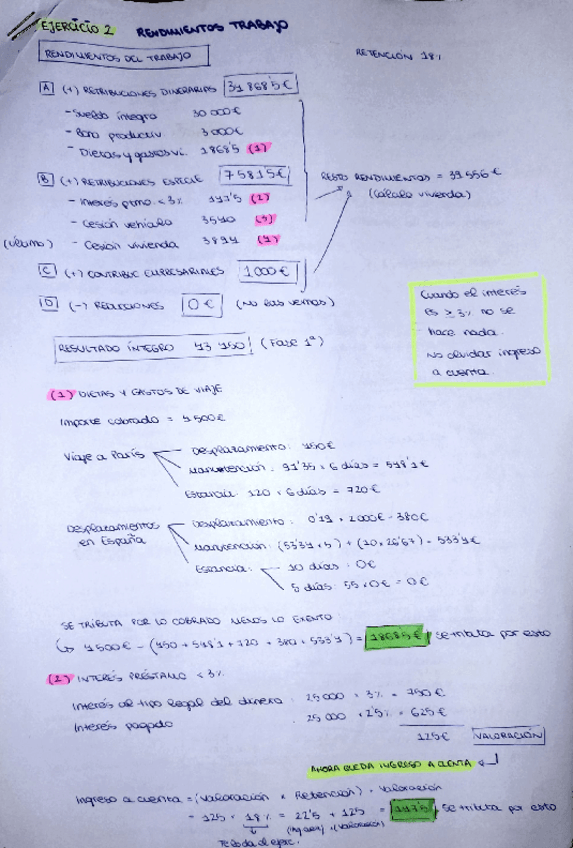 EJERCICIO 2 RENDIMIENTOS TRABAJO
RENDIMIENTOS DEL TRABAJO
RETENCIÓN 18%
A (+) RETRIBUCIONES DINERARIAS 34868'5€
- Sueldo íntegro 30 000€
- Bono productiv. 3 000€
- Dietas y gastos vi. 1868'5 (1)
B (+) RETRIBUCIONES ESPECIE 7581'5€
RESTO RENDIMIENTOS = 39 556€
(cálculo vivienda)
- Interés ptmo. < 3% 147'5 (2)
- Cesión vehículo 3540 (3)
(último) - Cesión vivienda 3894 (4)
C (+) CONTRIBUC. EMPRESARIALES 1000€
D (-) REDUCCIONES 0€ (No las vemos)
RESULTADO ÍNTEGRO 43 450 (Fase 1ª)
Cuando el interés
es ≥ 3% no se
hace nada.
No olvidar ingreso
a cuenta.
(1) DIETAS Y GASTOS DE VIAJE
Importe cobrado = 4500€
Viaje a París
Desplazamiento: 450€
Manutención: 91'35 x 6 días = 548'1€
Estancia: 120 x 6 días = 720€
Desplazamientos
en España
Desplazamiento: 0'19 x 2000 = 380€
Manutención: (53'34 x 5) + (10 x 26'67) = 533'4€
Estancia:
10 días: 0€
5 días: 55 x 0€ = 0€
SE TRIBUTA POR LO COBRADO MENOS LO EXENTO
↳ 4500€ - (450 + 548'1 + 720 + 380 + 533'4) = 1868'5€ se tributa por esto
(2) INTERÉS PRÉSTAMO < 3%
Interés al tipo legal del dinero: 25 000 x 3% = 750€
Interés pagado: 25 000 x 2'5% = 625€
125€ VALORACIÓN
AHORA QUEDA INGRESO A CUENTA
Ingreso a cuenta = (Valoración x Retención) + Valoración
= 125 x 18% = 22'5 + 125 = 147'5 se tributa por esto
(Ing. a cta) + (Valoración)
Te lo da el ejerc.